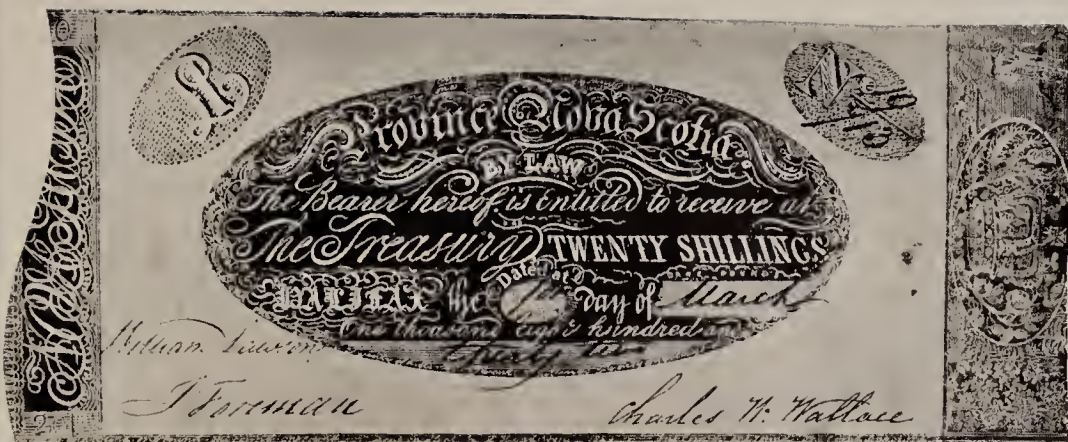 Province Nova Scotia
BY LAW
The Bearer hereof is entitled to receive at
The Treasury TWENTY SHILLINGS
Dated at
HALIFAX the day of March
One thousand eight hundred and
William Lawson
J Foreman
Charles W. Wallace